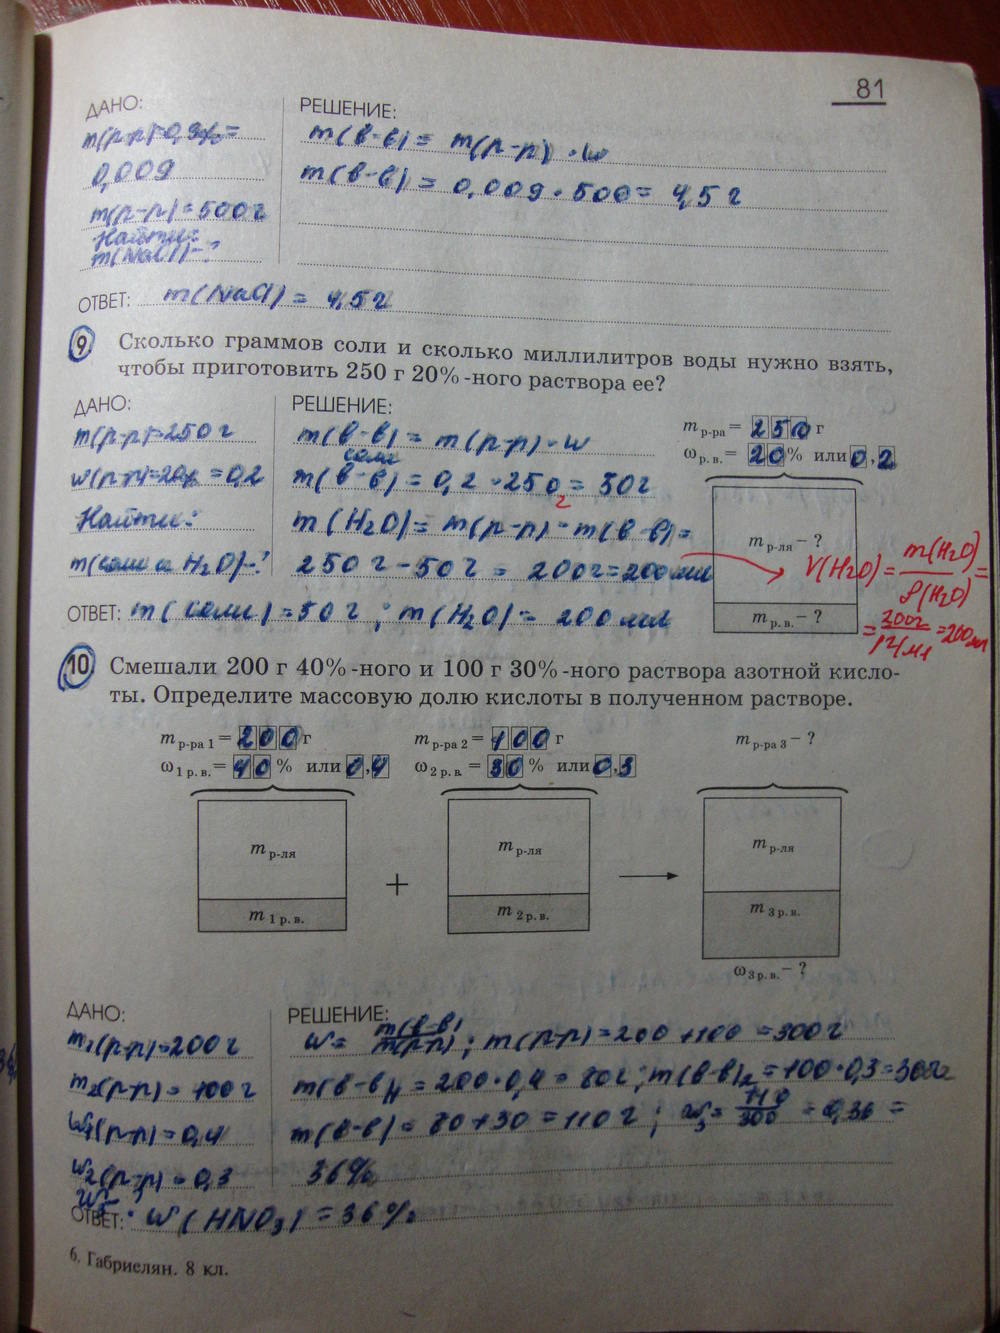 81
ДАНО:
РЕШЕНИЕ:
m(р-р)=0,9%=
0,009
m(р-р)=500г
Найти:
m(NaCl)-?
m(в-в) = m(р-р) · w
m(в-в) = 0,009 · 500 = 4,5 г
ОТВЕТ: m(NaCl) = 4,5 г
9 Сколько граммов соли и сколько миллилитров воды нужно взять,
чтобы приготовить 250 г 20%-ного раствора ее?
ДАНО:
РЕШЕНИЕ:
m(р-р)=250г
w(р-р)=20%=0,2
Найти:
m(соли и H2O)-?
m(в-в) = m(р-р) · w
соли
m(в-в) = 0,2 · 250 = 50г
г
m(H2O) = m(р-р) - m(в-в) =
250г - 50г = 200г = 200мл
m р-ра = 250 г
ω р. в. = 20 % или 0,2
m р-ля – ?
m р. в. – ?
V(H2O) = m(H2O) / ρ(H2O) =
= 200г / 1г/мл = 200мл
ОТВЕТ: m(соли) = 50г ; m(H2O) = 200мл
10 Смешали 200 г 40%-ного и 100 г 30%-ного раствора азотной кисло-
ты. Определите массовую долю кислоты в полученном растворе.
m р-ра 1 = 200 г m р-ра 2 = 100 г m р-ра 3 – ?
ω 1 р. в. = 40 % или 0,4 ω 2 р. в. = 30 % или 0,3
m р-ля m р-ля m р-ля
+
m 1 р. в. m 2 р. в. m 3 р. в.
ω 3 р. в. – ?
ДАНО:
РЕШЕНИЕ:
m1(р-р)=200г
m2(р-р)=100г
w1(р-р)=0,4
w2(р-р)=0,3
w = m(в-в) / m(р-р) ; m(р-р)=200+100=300г
m(в-в)1 = 200·0,4 = 80г ; m(в-в)2 = 100·0,3 = 30г
m(в-в) = 80+30 = 110г ; w3 = 110/300 = 0,36 =
36%
ОТВЕТ: w(HNO3) = 36%
6. Габриелян. 8 кл.